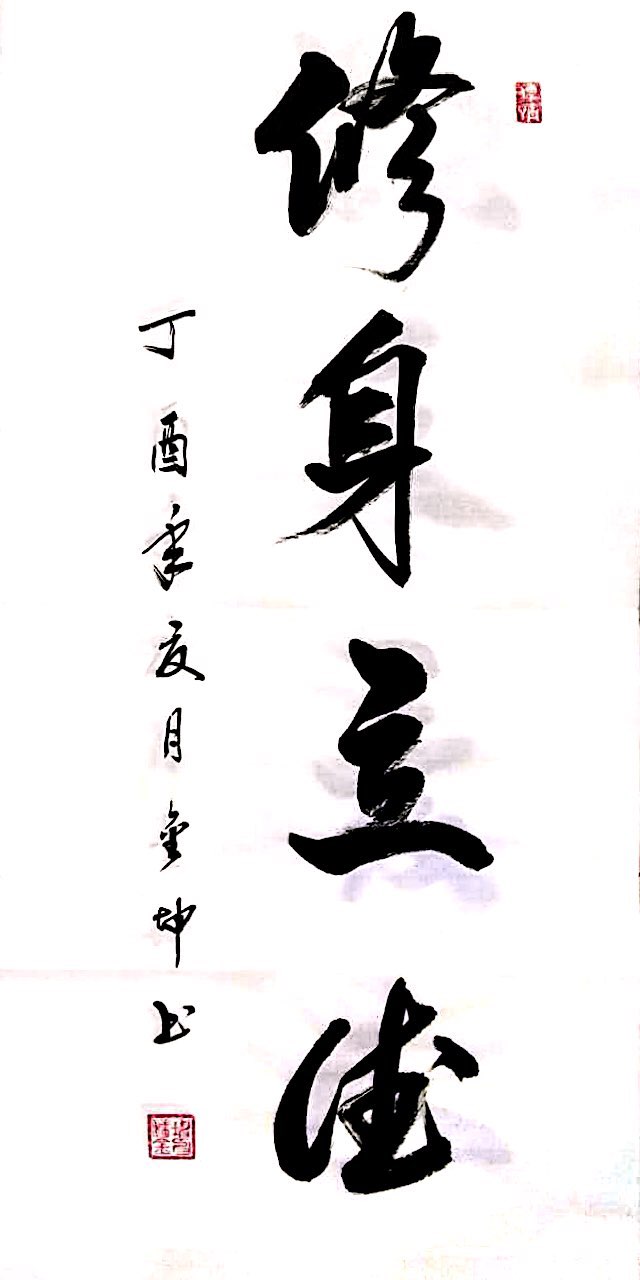 修身立德
丁酉年夏月金坤书